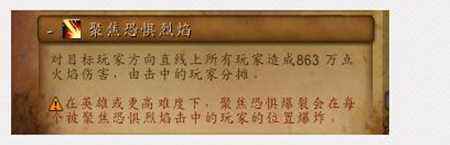 - 聚焦恐惧烈焰
对目标玩家方向直线上所有玩家造成863 万点
火焰伤害，由击中的玩家分摊。
在英雄或更高难度下，聚焦恐惧爆裂会在每
个被聚焦恐惧烈焰击中的玩家的位置爆炸。